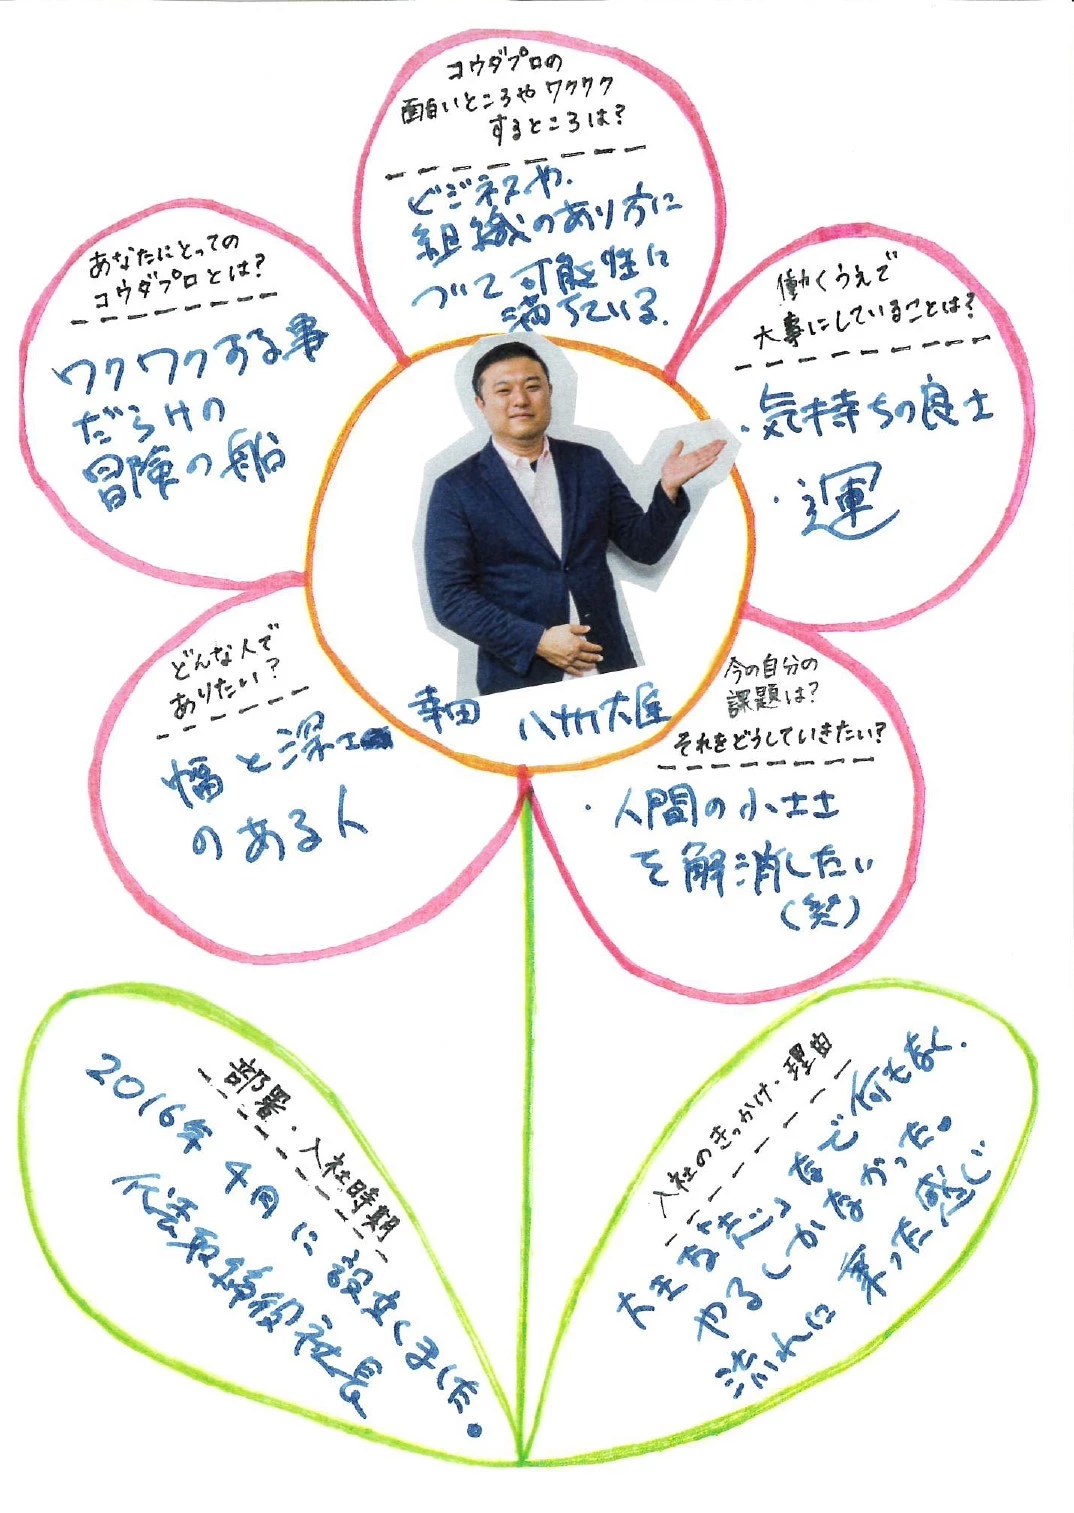 コウダプロの
面白いところやワクワク
するところは?
ビジネスや、
組織のあり方に
ついて可能性に
満ちている。
あなたにとっての
コウダプロとは?
ワクワクする事
だらけの
冒険の船
働くうえで
大事にしていることは?
・気持ちの良さ
・運
どんな人で
ありたい?
幅と深さ
のある人
幸田 八州大
今の自分の
課題は?
それをどうしていきたい?
・人間の小ささ
を解消したい
(笑)
部署・入社時期
2016年4月に設立しました。
代表取締役社長
入社のきっかけ・理由
大きな
なで何もなく、
やるしかなかった。
流れに乗った感じ